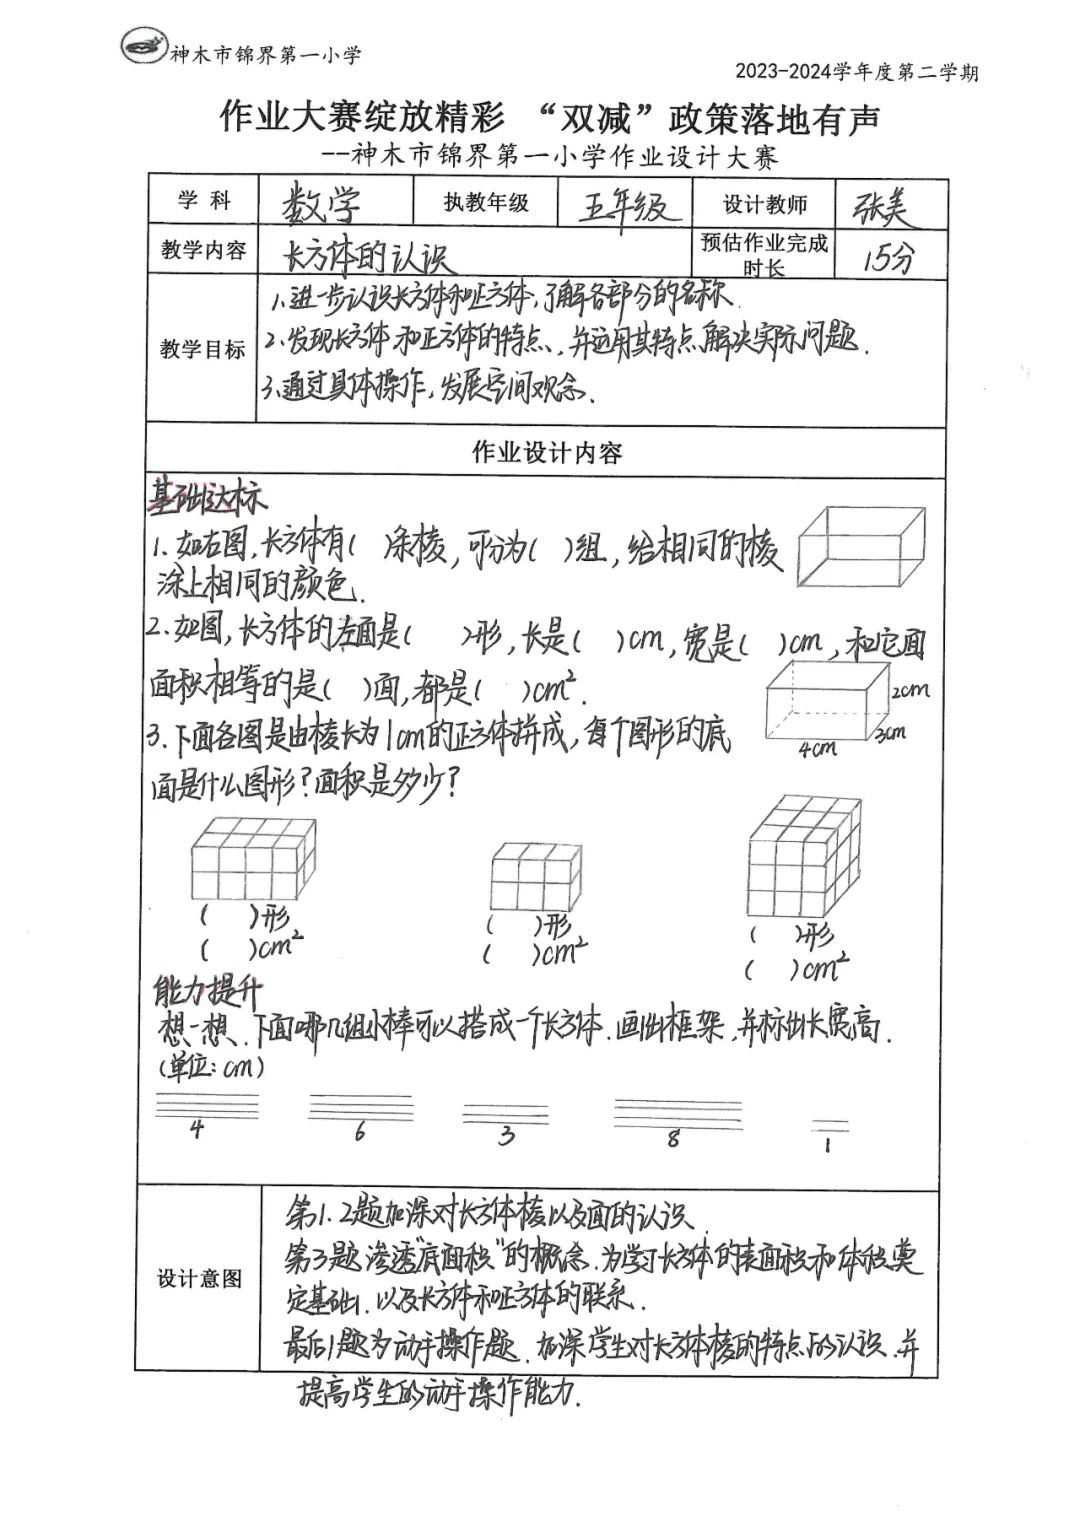 神木市锦界第一小学
2023-2024学年度第二学期
作业大赛绽放精彩 “双减”政策落地有声
--神木市锦界第一小学作业设计大赛
学 科 数学 执教年级 五年级 设计教师 张美
教学内容 长方体的认识 预估作业完成时长 15分
教学目标
1、进一步认识长方体和正方体,了解各部分的名称.
2、发现长方体和正方体的特点,并运用其特点解决实际问题.
3、通过具体操作,发展空间观念.
作业设计内容
基础达标
1.如右图,长方体有( )条棱,可分为( )组,给相同的棱
涂上相同的颜色.
2.如图,长方体的左面是( )形,长是( )cm,宽是( )cm,和它面
面积相等的是( )面,都是( )cm².
2cm
3cm
4cm
3.下面各图是由棱长为1cm的正方体拼成,每个图形的底
面是什么图形?面积是多少?
( )形 ( )形 ( )形
( )cm² ( )cm² ( )cm²
能力提升
想一想.下面哪几组小棒可以搭成一个长方体.画出框架,并标出长宽高.
(单位:cm)
4 6 3 8 1
设计意图
第1.2题加深对长方体棱以及面的认识.
第3题渗透“底面积”的概念.为学习长方体的表面积和体积奠
定基础.以及长方体和正方体的联系.
最后1题为动手操作题.加深学生对长方体棱的特点的认识.并
提高学生的动手操作能力.